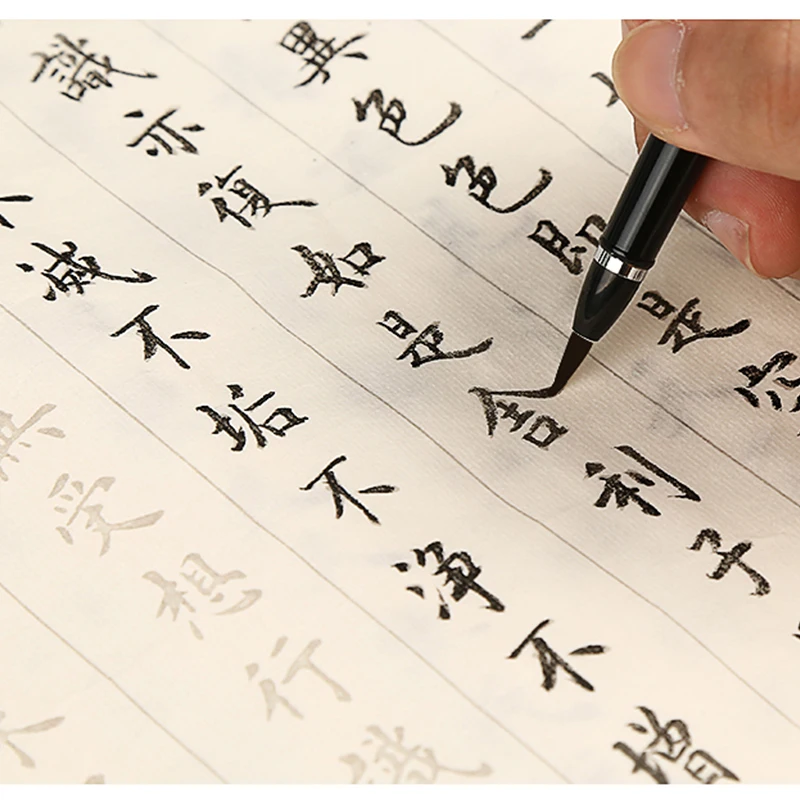 異色色即是空
識亦復如是舍利子
不滅不垢不淨不增
無受想行識